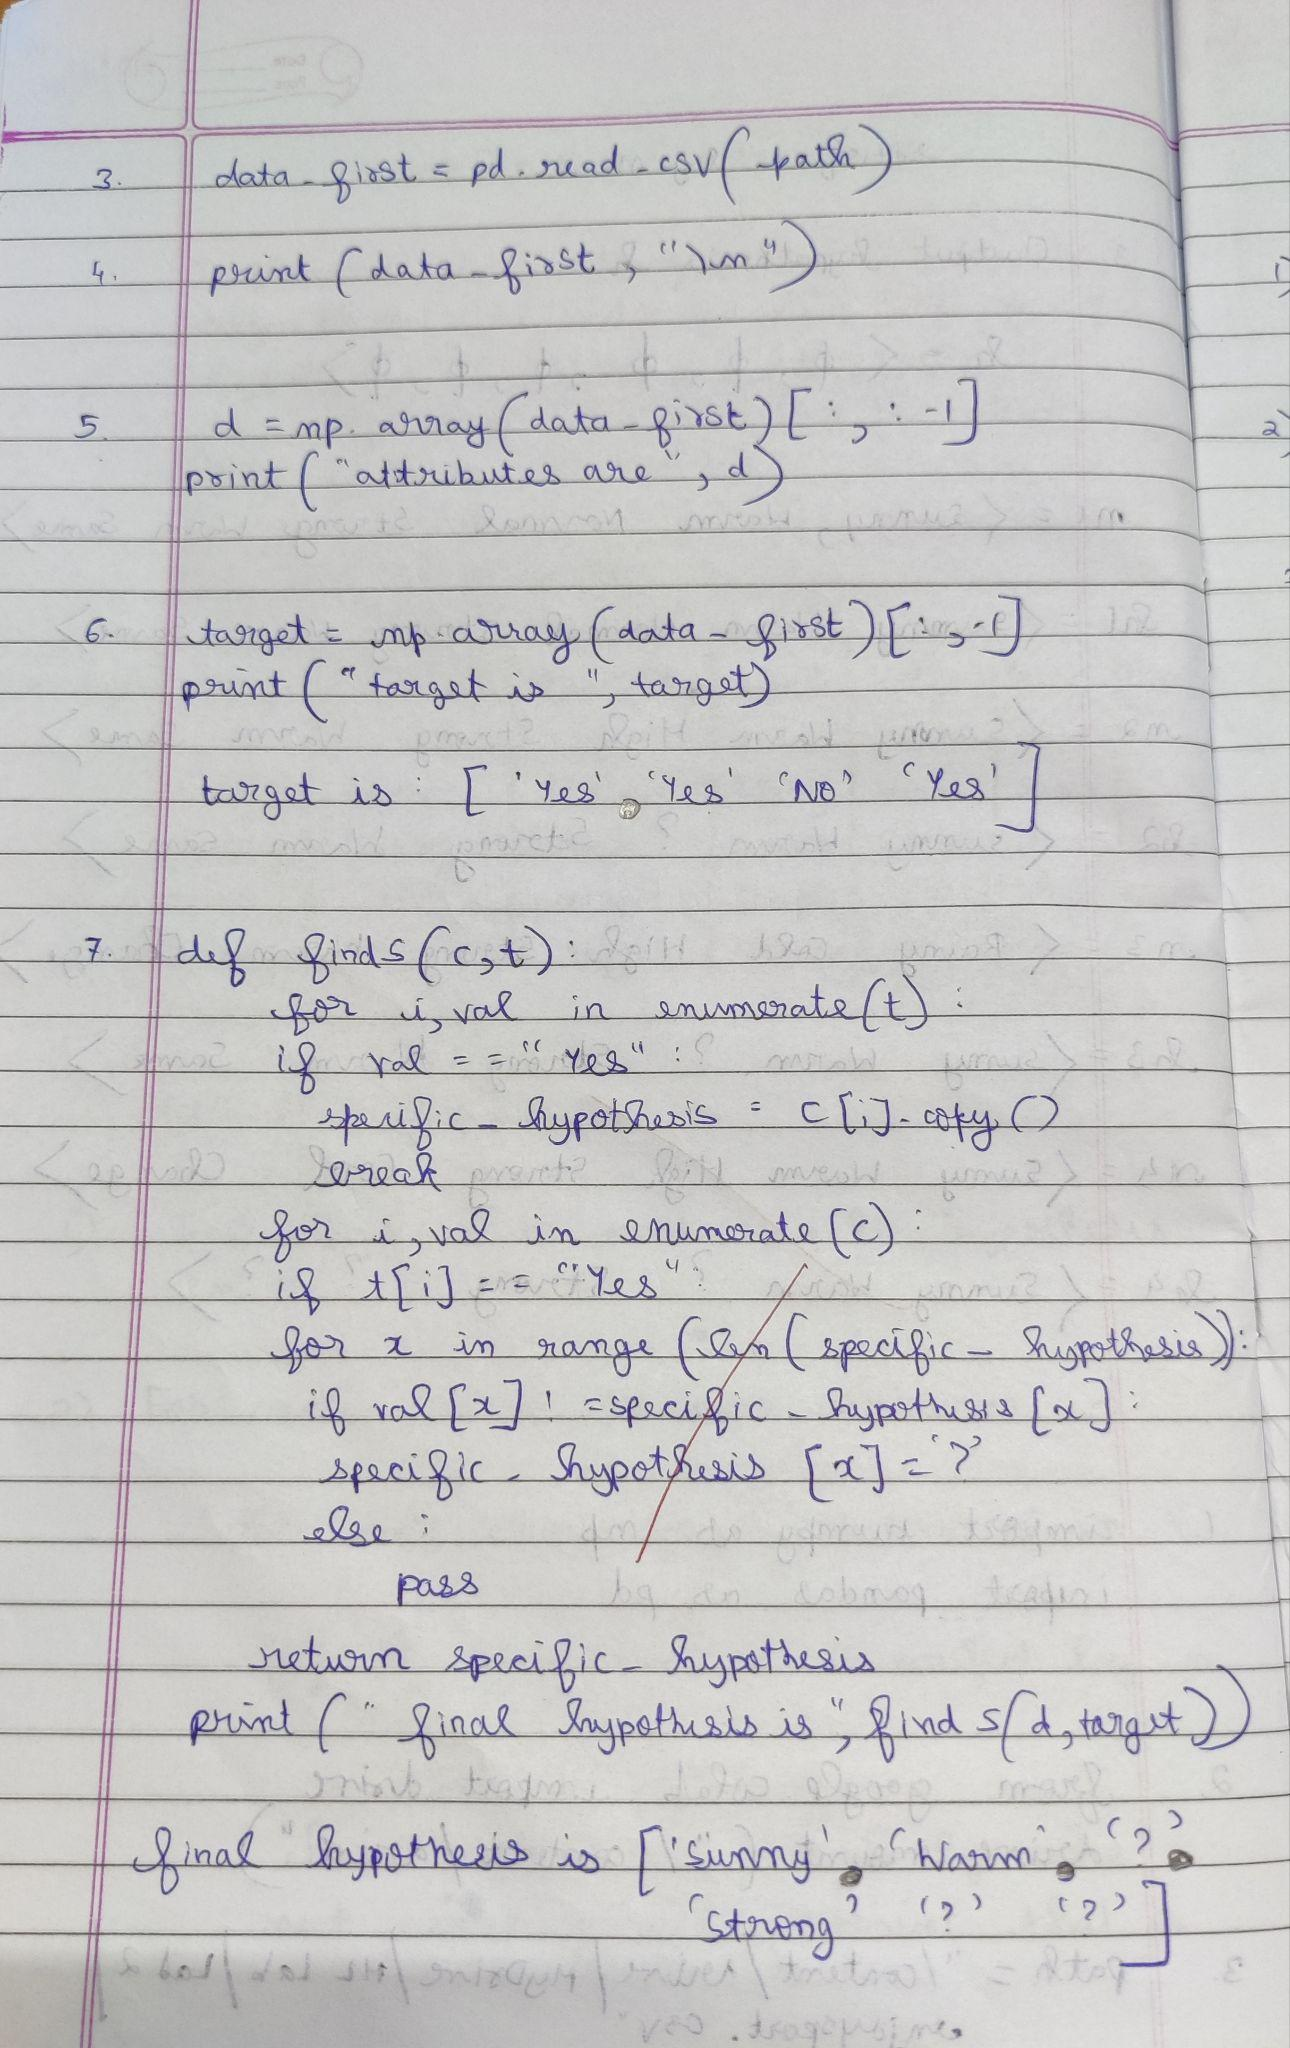 3. data_first = pd.read_csv(path)
4. print (data_first, "\n")
5. d = np.array(data_first)[:, :-1]
print ("attributes are", d)
6. target = np.array(data_first)[:,-1]
print ("target is", target)
target is : ['Yes' 'Yes' 'No' 'Yes']
7. def finds(c,t):
for i, val in enumerate(t):
if val == "Yes":
specific_hypothesis = c[i].copy()
break
for i, val in enumerate(c):
if t[i] == "Yes":
for x in range (len (specific_hypothesis)):
if val[x] != specific_hypothesis[x]:
specific_hypothesis [x] = '?'
else :
pass
return specific_hypothesis
print (" final hypothesis is", finds(d, target))
final hypothesis is ['Sunny' 'Warm' '?'
'Strong' '?' '?']